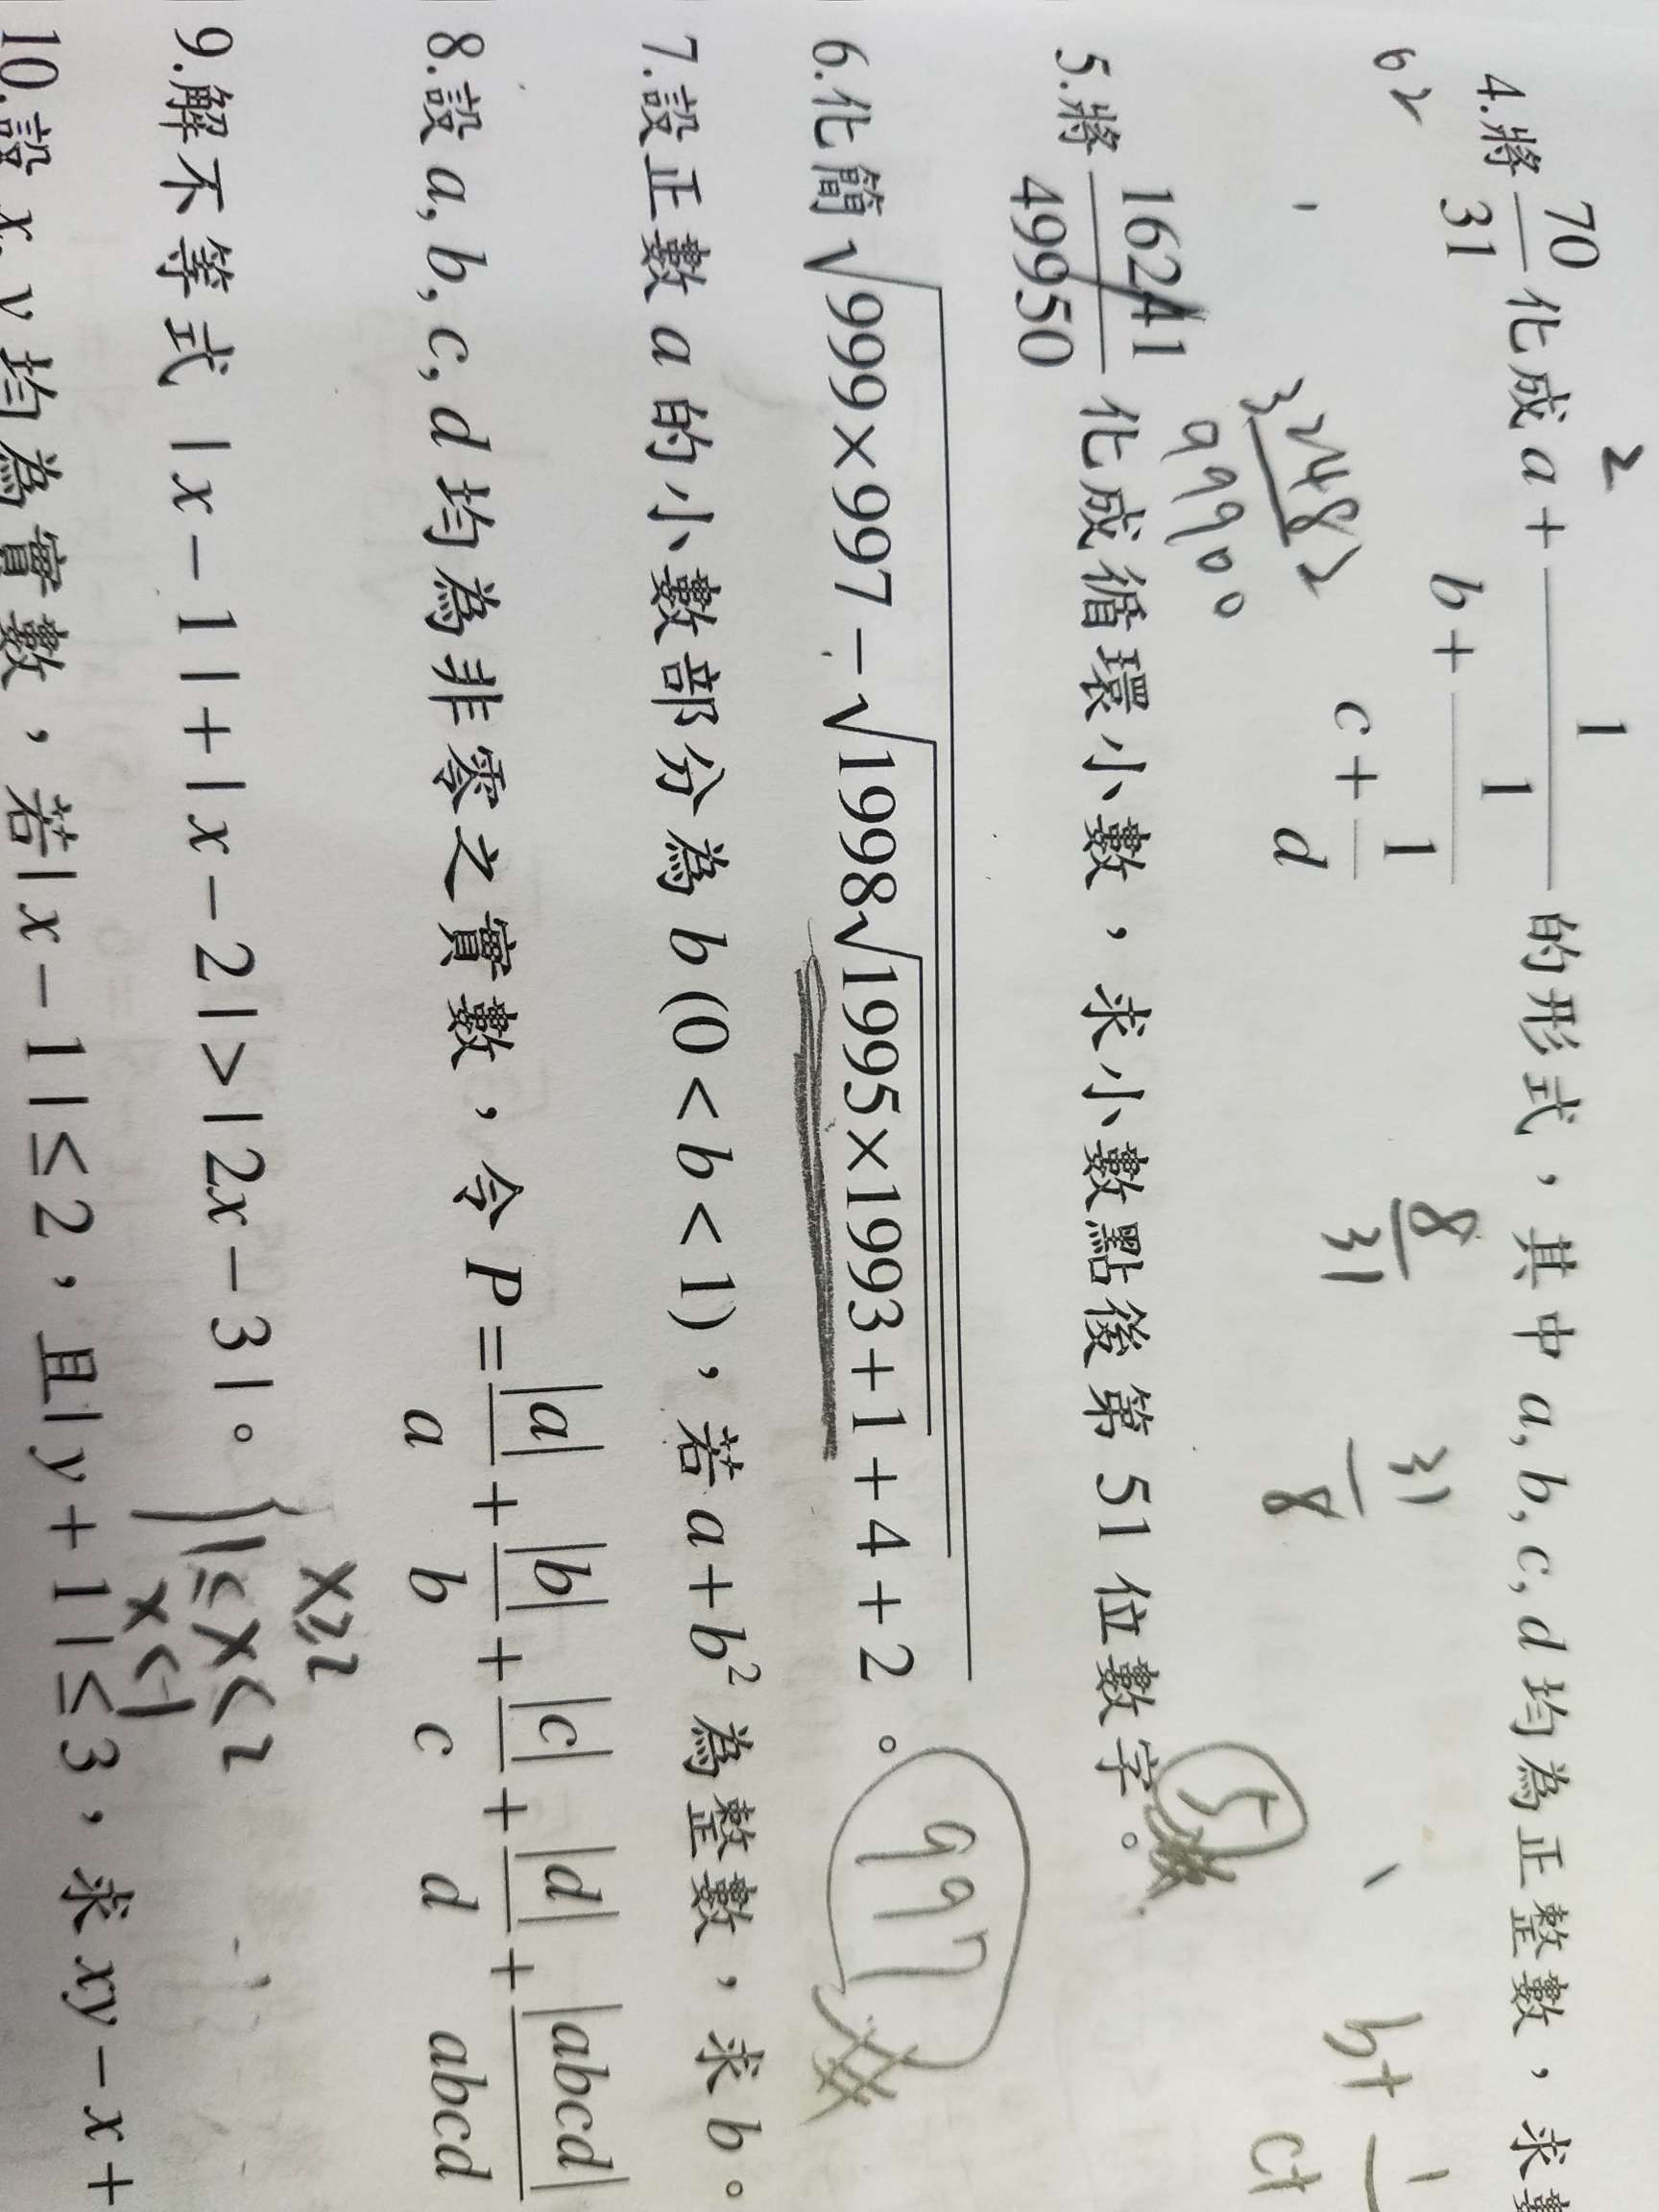 4.將 70/31 化成 a + 1/(b + 1/(c + 1/d)) 的形式，其中 a, b, c, d 均為正整數，求
2
62
8/31
31/8
b+ 1/
c+
5.將 16241/49950 化成循環小數，求小數點後第 51 位數字。
32482
99900
5
6.化簡 √(999×997 − √(1998√(1995×1993+1)+4)+2)。
997
7.設正數 a 的小數部分為 b (0 < b < 1)，若 a + b² 為整數，求 b。
8.設 a, b, c, d 均為非零之實數，令 P = |a|/a + |b|/b + |c|/c + |d|/d + |abcd|/abcd
9.解不等式 | x − 1 | + | x − 2 | > | 2x − 3 |。
x≥2
1≤x<2
x<1
10.設 x, y 均為實數，若 | x − 1 | ≤ 2，且 | y + 1 | ≤ 3，求 xy − x +